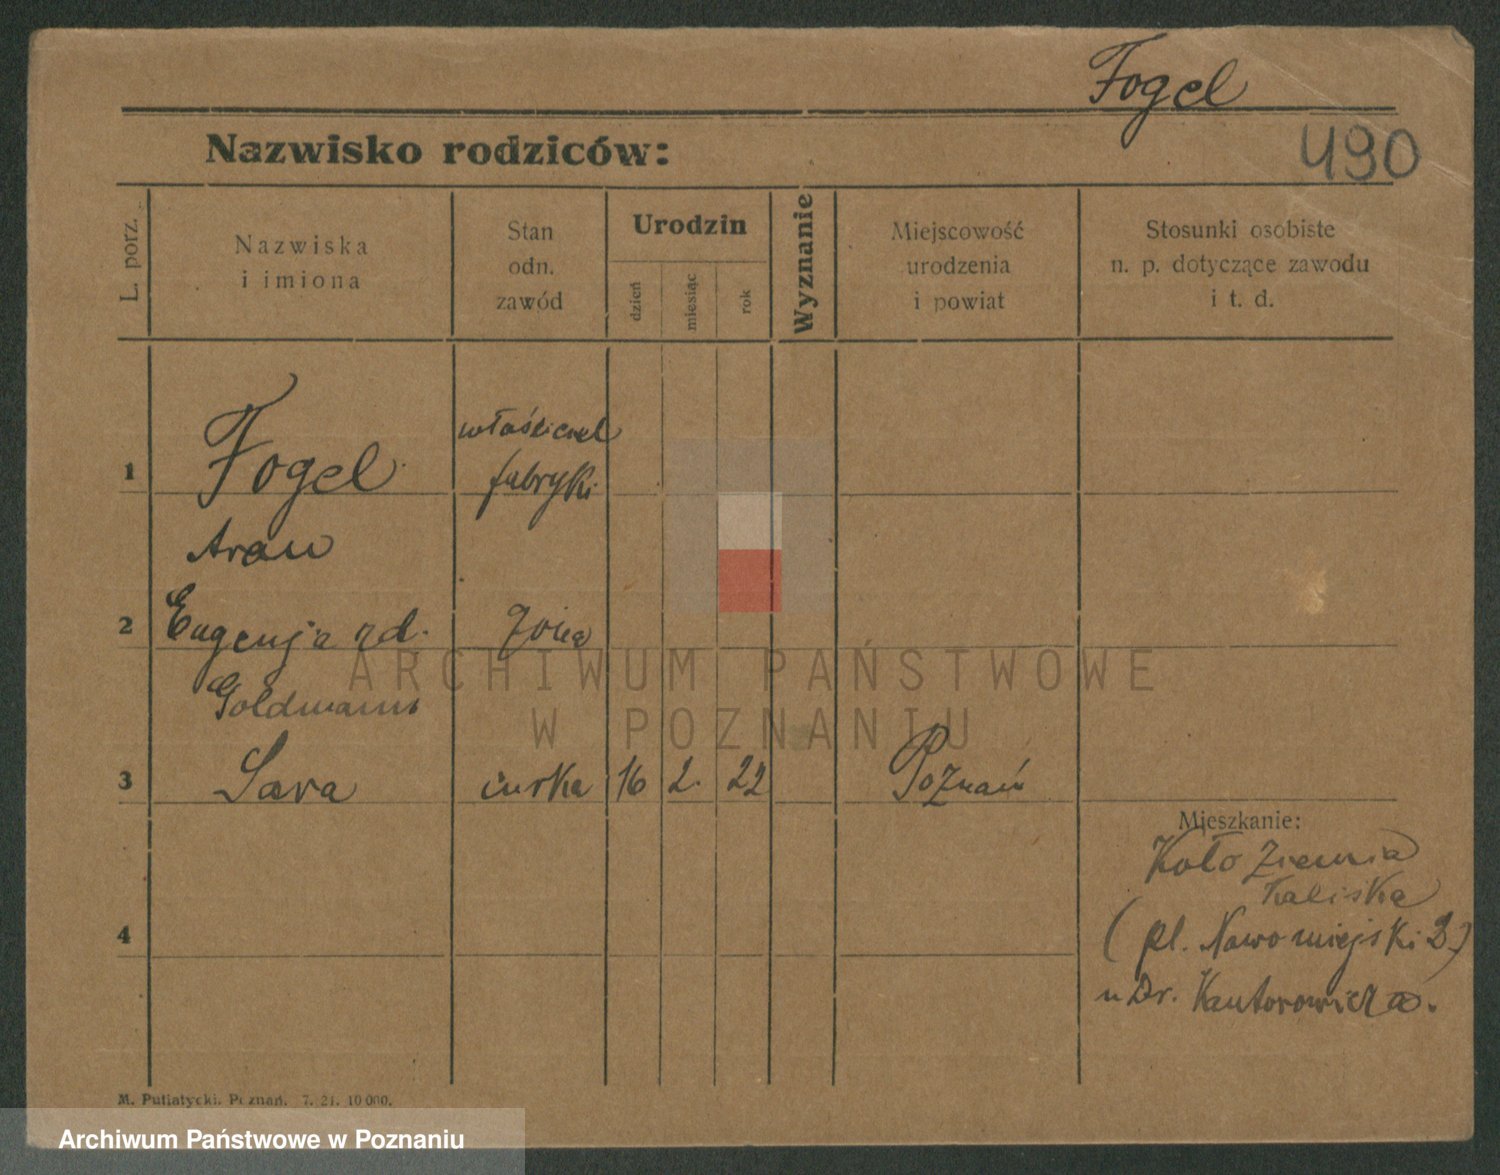 Fogel
490
Nazwisko rodziców:
L. porz.
Nazwiska
i imiona
Stan
odn.
zawód
Urodzin
dzień
miesiąc
rok
Wyznanie
Miejscowość
urodzenia
i powiat
Stosunki osobiste
n. p. dotyczące zawodu
i t. d.
1
Fogel
właściciel
fabryki
Aron
2
Eugenja rd.
żona
Goldmann
3
Sara
córka
16
2.
22
Poznań
Mieszkanie:
Koło Ziemia
Kaliska
4
(pl. Nowomiejski 2)
u Dr. Kantorowicza.
M. Putiatycki, Poznań. 7. 21. 10 000.
ARCHIWUM PAŃSTWOWE
W POZNANIU
Archiwum Państwowe w Poznaniu